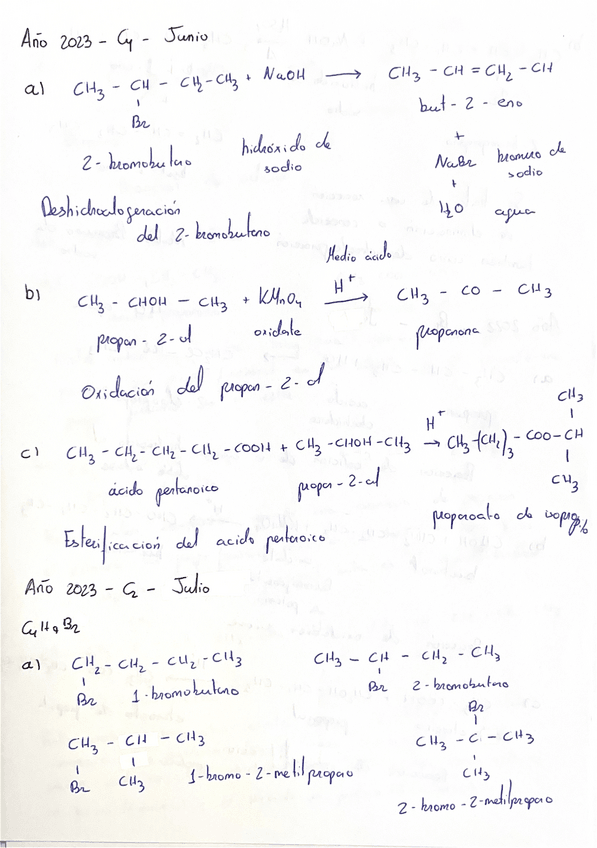 Año 2023 - C4 - Junio
a) CH3 - CH - CH2-CH3 + NaOH ⟶ CH3 - CH = CH2 - CH
Br
but - 2 - eno
2 - bromobutano hidróxido de sodio
+
NaBr bromuro de sodio
+
H2O agua
Deshidrohalogenación
del 2-bromobutano
b) CH3 - CHOH - CH3 + KMnO4 ⟶ CH3 - CO - CH3
Medio ácido
H+
propan - 2 - ol oxidante propanona
Oxidación del propan - 2 - ol
c) CH3 - CH2 - CH2 - CH2 - COOH + CH3 - CHOH - CH3 → CH3-(CH2)3 - COO - CH
H+
CH3
CH3
ácido pentanoico propan - 2 - ol
propanoato de isopropilo
Esterificación del acido pentanoico
Año 2023 - C2 - Julio
C4H9Br
a) CH2 - CH2 - CH2 - CH3 CH3 - CH - CH2 - CH3
Br 1-bromobutano Br 2-bromobutano
Br
CH3 - CH - CH3 CH3 - C - CH3
Br CH3 1-bromo-2-metilpropano CH3
2-bromo-2-metilpropano